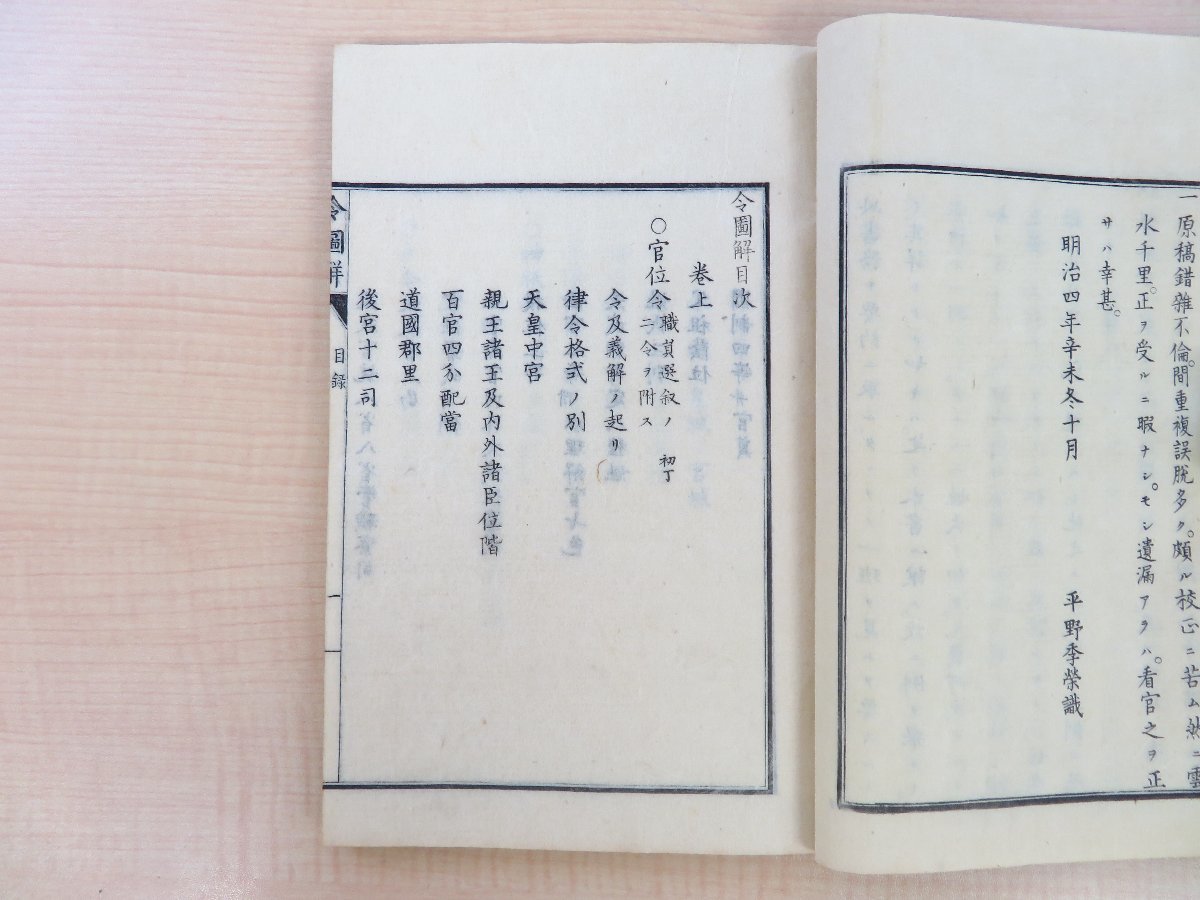 一原稿錯雜不倫。間重複誤脫多ク。頗ル校正ニ苦ム。然ニ雲
水千里。正ヲ受ルニ暇ナシ。モシ遺漏アラハ。看官之ヲ正
サハ幸甚。
明治四年辛未冬十月 平野季榮識
令圖解目次
卷上
○官位令 職員選叙ノ二令ヲ附ス 初丁
令及義解ノ起リ
律令格式ノ別
天皇中宮
親王諸王及內外諸臣位階
百官四分配當
道國郡里
後宮十二司
令圖解 目録 一